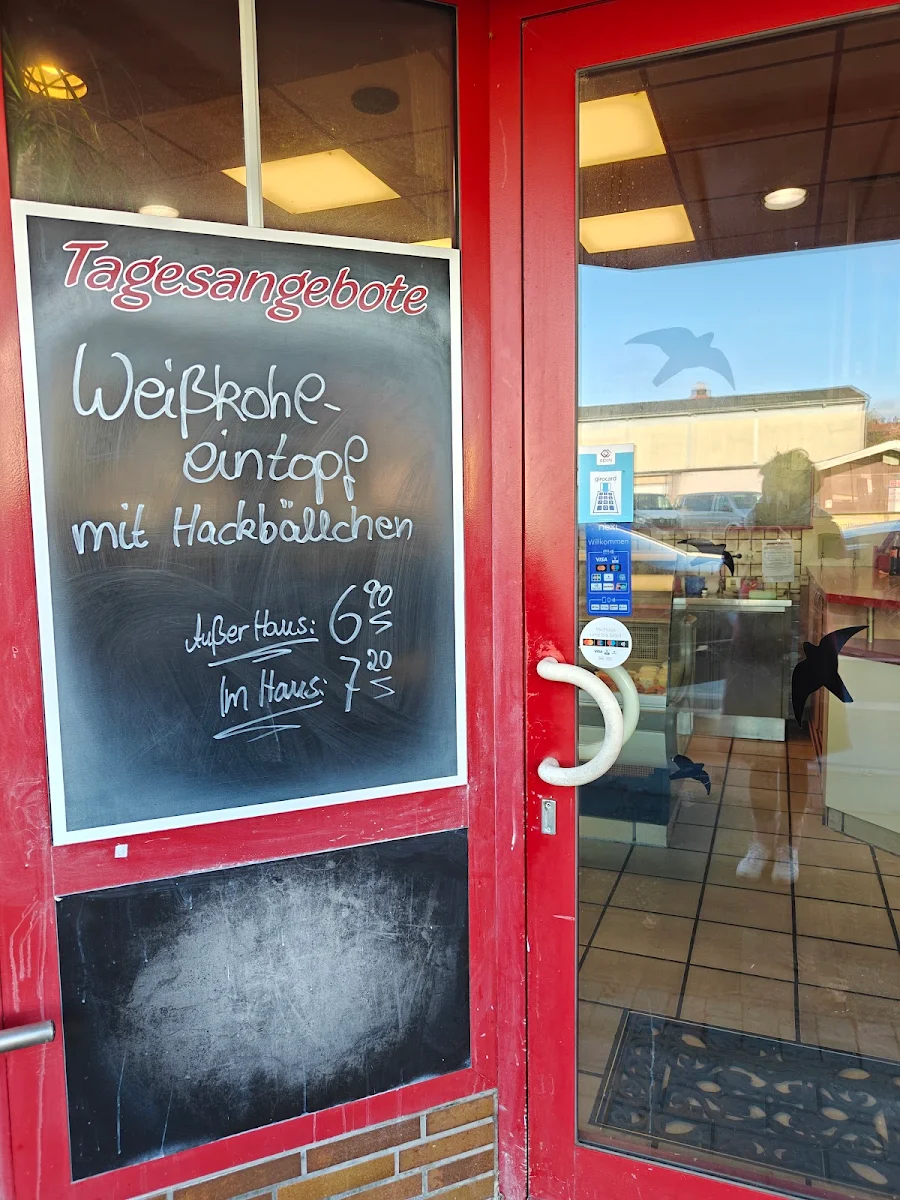 Tagesangebote
Weißkohl-
eintopf
mit Hackbällchen
Außer Haus: 6 90
Im Haus: 7 20
girocard
nexi
Willkommen
VISA